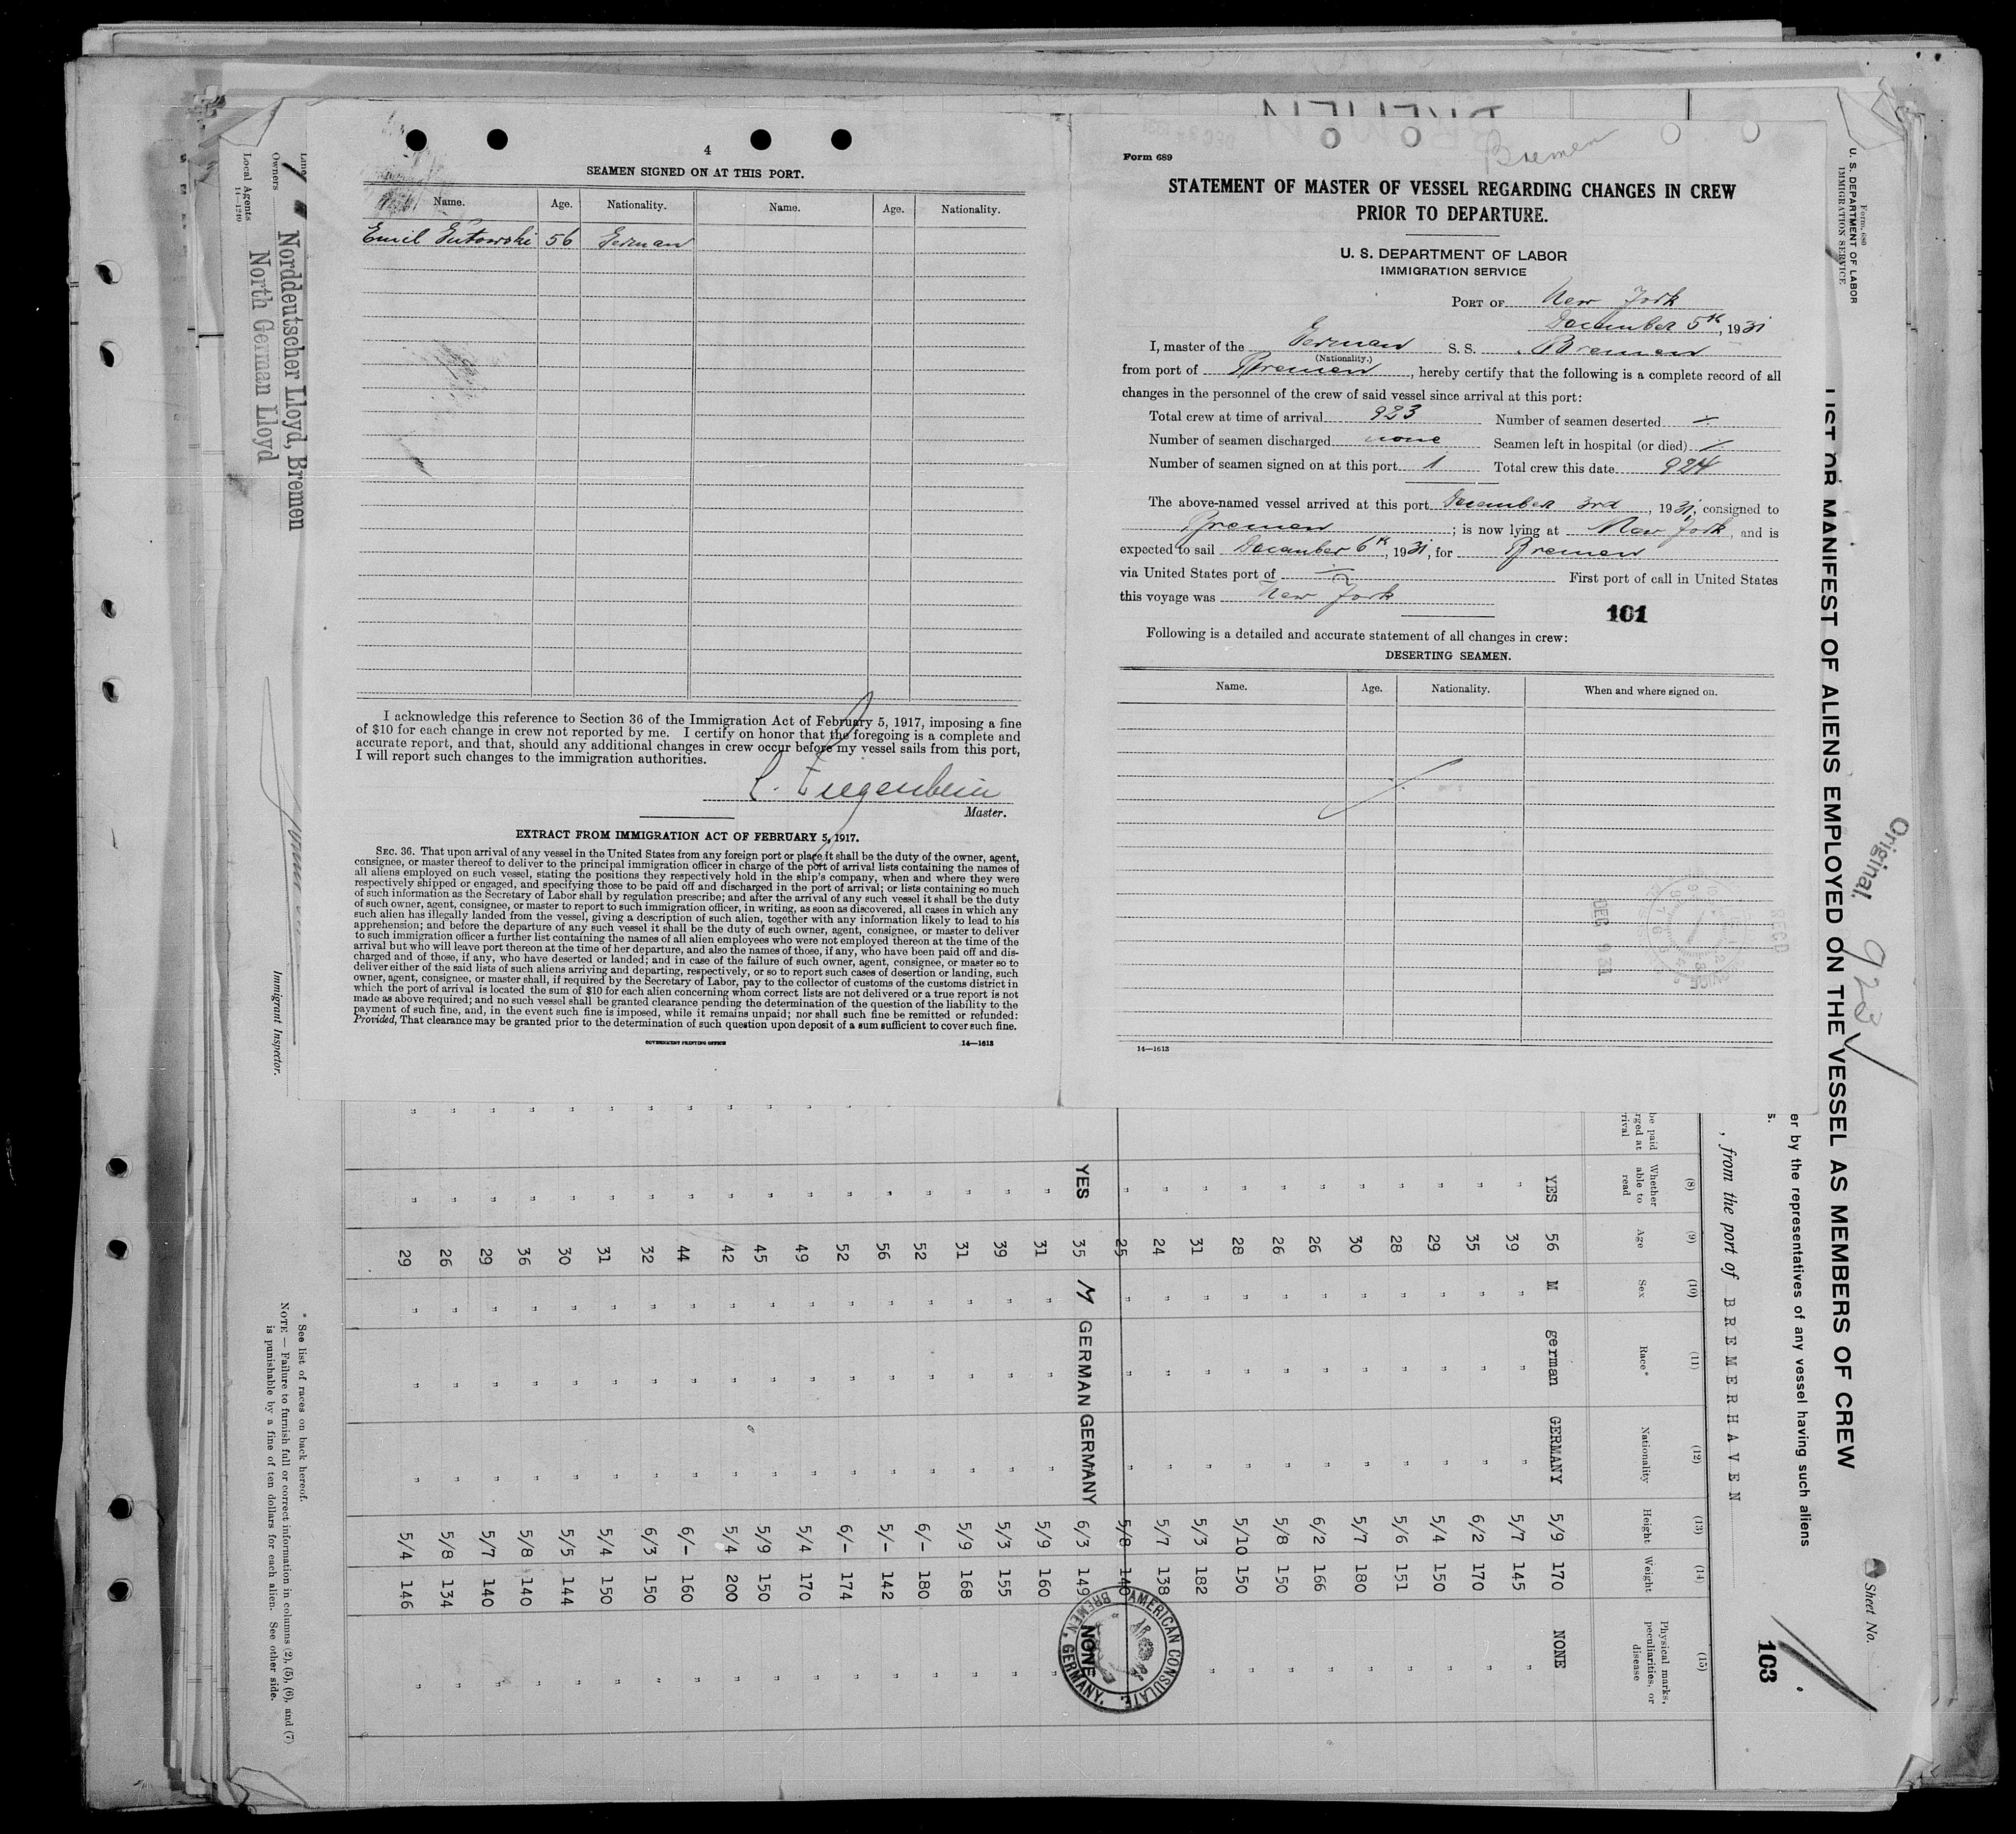 4
SEAMEN SIGNED ON AT THIS PORT.
Name. Age. Nationality. Name. Age. Nationality.
Emil Gutowski 56 German
I acknowledge this reference to Section 36 of the Immigration Act of February 5, 1917, imposing a fine
of $10 for each change in crew not reported by me. I certify on honor that the foregoing is a complete and
accurate report, and that, should any additional changes in crew occur before my vessel sails from this port,
I will report such changes to the immigration authorities.
L. Ziegenbein
Master.
EXTRACT FROM IMMIGRATION ACT OF FEBRUARY 5, 1917.
SEC. 36. That upon arrival of any vessel in the United States from any foreign port or place it shall be the duty of the owner, agent,
consignee, or master thereof to deliver to the principal immigration officer in charge of the port of arrival lists containing the names of
all aliens employed on such vessel, stating the positions they respectively hold in the ship's company, when and where they were
respectively shipped or engaged, and specifying those to be paid off and discharged in the port of arrival; or lists containing so much
of such information as the Secretary of Labor shall by regulation prescribe; and after the arrival of any such vessel it shall be the duty
of such owner, agent, consignee, or master to report to such immigration officer, in writing, as soon as discovered, all cases in which any
such alien has illegally landed from the vessel, giving a description of such alien, together with any information likely to lead to his
apprehension; and before the departure of any such vessel it shall be the duty of such owner, agent, consignee, or master to deliver
to such immigration officer a further list containing the names of all alien employees who were not employed thereon at the time of the
arrival but who will leave port thereon at the time of her departure, and also the names of those, if any, who have been paid off and dis-
charged and of those, if any, who have deserted or landed; and in case of the failure of such owner, agent, consignee, or master so to
deliver either of the said lists of such aliens arriving and departing, respectively, or so to report such cases of desertion or landing, such
owner, agent, consignee, or master shall, if required by the Secretary of Labor, pay to the collector of customs of the customs district in
which the port of arrival is located the sum of $10 for each alien concerning whom correct lists are not delivered or a true report is not
made as above required; and no such vessel shall be granted clearance pending the determination of the question of the liability to the
payment of such fine, and, in the event such fine is imposed, while it remains unpaid; nor shall such fine be remitted or refunded:
Provided, That clearance may be granted prior to the determination of such question upon deposit of a sum sufficient to cover such fine.
GOVERNMENT PRINTING OFFICE 14—1613
Bremen
Form 689
STATEMENT OF MASTER OF VESSEL REGARDING CHANGES IN CREW
PRIOR TO DEPARTURE.
U. S. DEPARTMENT OF LABOR
IMMIGRATION SERVICE
PORT OF New York
December 5th, 1931
I, master of the German S. S. Bremen
(Nationality.)
from port of Bremen, hereby certify that the following is a complete record of all
changes in the personnel of the crew of said vessel since arrival at this port:
Total crew at time of arrival 923 Number of seamen deserted ⁒
Number of seamen discharged none Seamen left in hospital (or died) /
Number of seamen signed on at this port 1 Total crew this date 924
The above-named vessel arrived at this port December 3rd, 1931, consigned to
Bremen; is now lying at New York, and is
expected to sail December 6th, 1931, for Bremen
via United States port of ⁒ First port of call in United States
this voyage was New York
101
Following is a detailed and accurate statement of all changes in crew:
DESERTING SEAMEN.
Name. Age. Nationality. When and where signed on.
14—1613
REC'D
DEC 31
Form 680
U. S. DEPARTMENT OF LABOR
IMMIGRATION SERVICE
LIST OR MANIFEST OF ALIENS EMPLOYED ON THE VESSEL AS MEMBERS OF CREW
Original
923
Sheet No.
103
er by the representatives of any vessel having such aliens
s.
, from the port of BREMERHAVEN
be paid
rged at
rival
(8) (9) (10) (11) (12) (13) (14) (15)
Whether able to read Age Sex Race* Nationality Height Weight Physical marks, peculiarities, or disease
YES 56 M german GERMANY 5/9 170 NONE
" 39 " " " 5/7 145 "
" 35 " " " 6/2 170 "
" 29 " " " 5/4 150 "
" 28 " " " 5/6 151 "
" 30 " " " 5/7 180 "
" 26 " " " 6/2 166 "
" 26 " " " 5/8 150 "
" 28 " " " 5/10 150 "
" 31 " " " 5/3 182 "
" 24 " " " 5/7 138
" 25 " " " 5/8 140
YES 35 M GERMAN GERMANY 6/3 149 NONE
" 31 " " " 5/9 160 "
" 39 " " " 5/3 155 "
" 31 " " " 5/9 168 "
" 52 " " " 6/- 180 "
" 56 " " " 5/- 142 "
" 52 " " " 6/- 174 "
" 49 " " " 5/4 170 "
" 45 " " " 5/9 150 "
" 42 " " " 5/4 200 "
" 44 " " " 6/- 160 "
" 32 " " " 6/3 150 "
" 31 " " " 5/4 150 "
" 30 " " " 5/5 144 "
" 36 " " " 5/8 140 "
" 29 " " " 5/7 140 "
" 26 " " " 5/8 134 "
" 29 " " " 5/4 146 "
AMERICAN CONSULATE, BREMEN, GERMANY.
Line
Owners Norddeutscher Lloyd, Bremen
Local Agents North German Lloyd
14—1240
Immigrant Inspector.
* See list of races on back hereof.
NOTE — Failure to furnish full or correct information in columns (2), (5), (6), and (7)
is punishable by a fine of ten dollars for each alien. See other side.